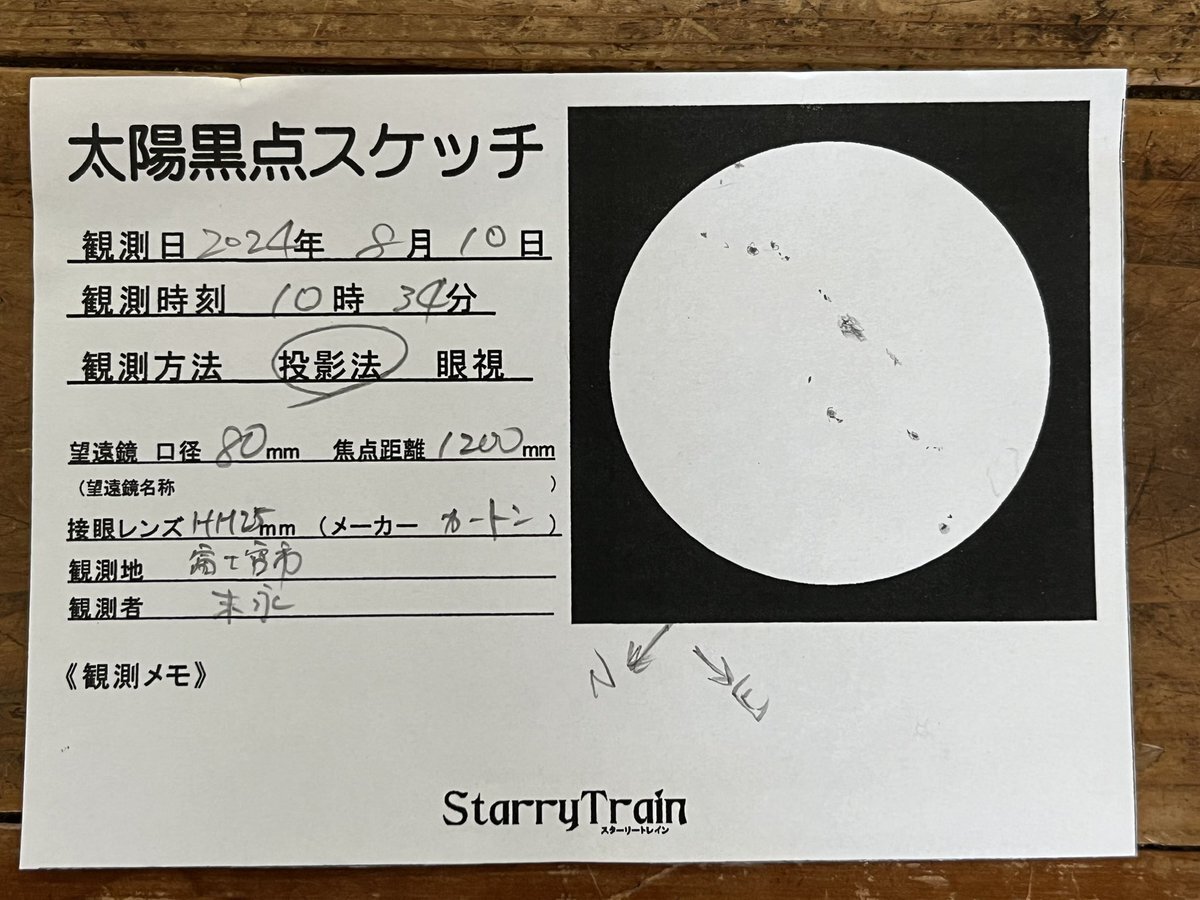 太陽黒点スケッチ
観測日 2024年 8月 10日
観測時刻 10時 34分
観測方法 投影法 眼視
望遠鏡 口径 80mm 焦点距離 1200mm
(望遠鏡名称 )
接眼レンズ HM25mm (メーカー カートン )
観測地 富士宮市
観測者 末永
N E
《観測メモ》
StarryTrain
スターリートレイン